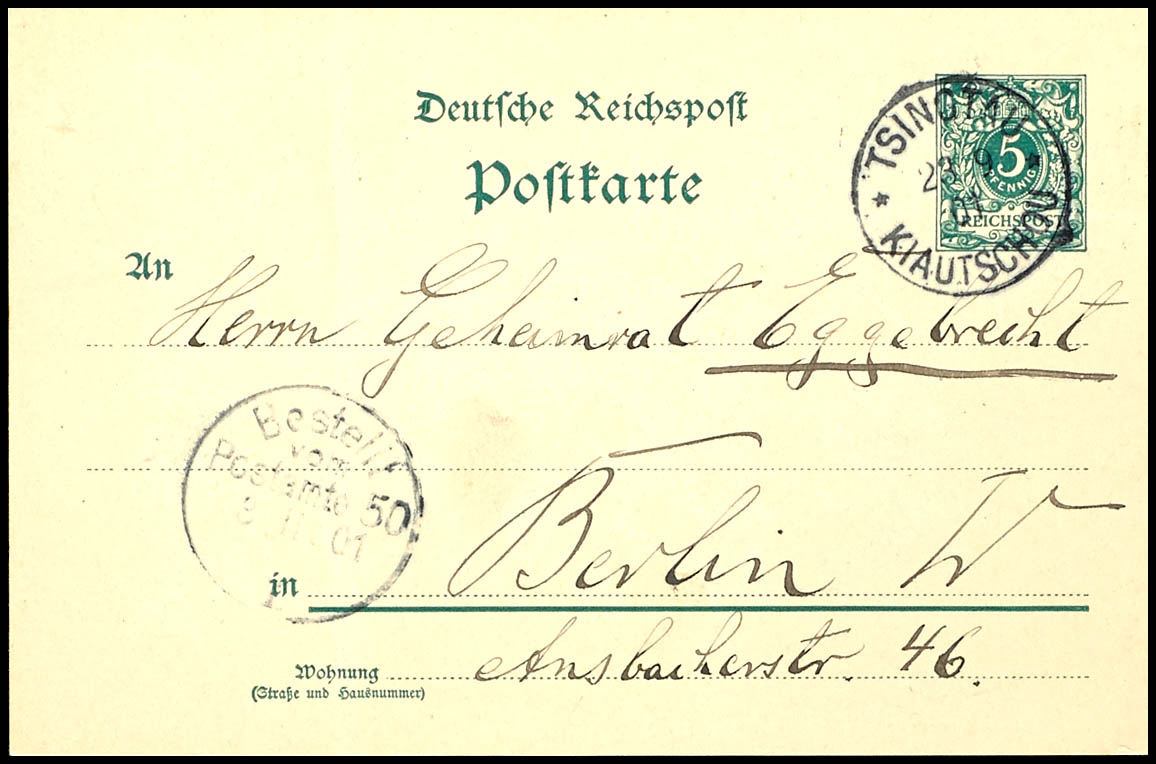 Deutsche Reichspost
Postkarte
TSINGTAU
23 9
01
KIAUTSCHOU
5
PFENNIG
REICHSPOST
An Herrn Geheimrat Eggebrecht
Bestellt
vom
Postamte 50
3 11 01
in Berlin W
Wohnung Ansbacherstr. 46.
(Straße und Hausnummer)